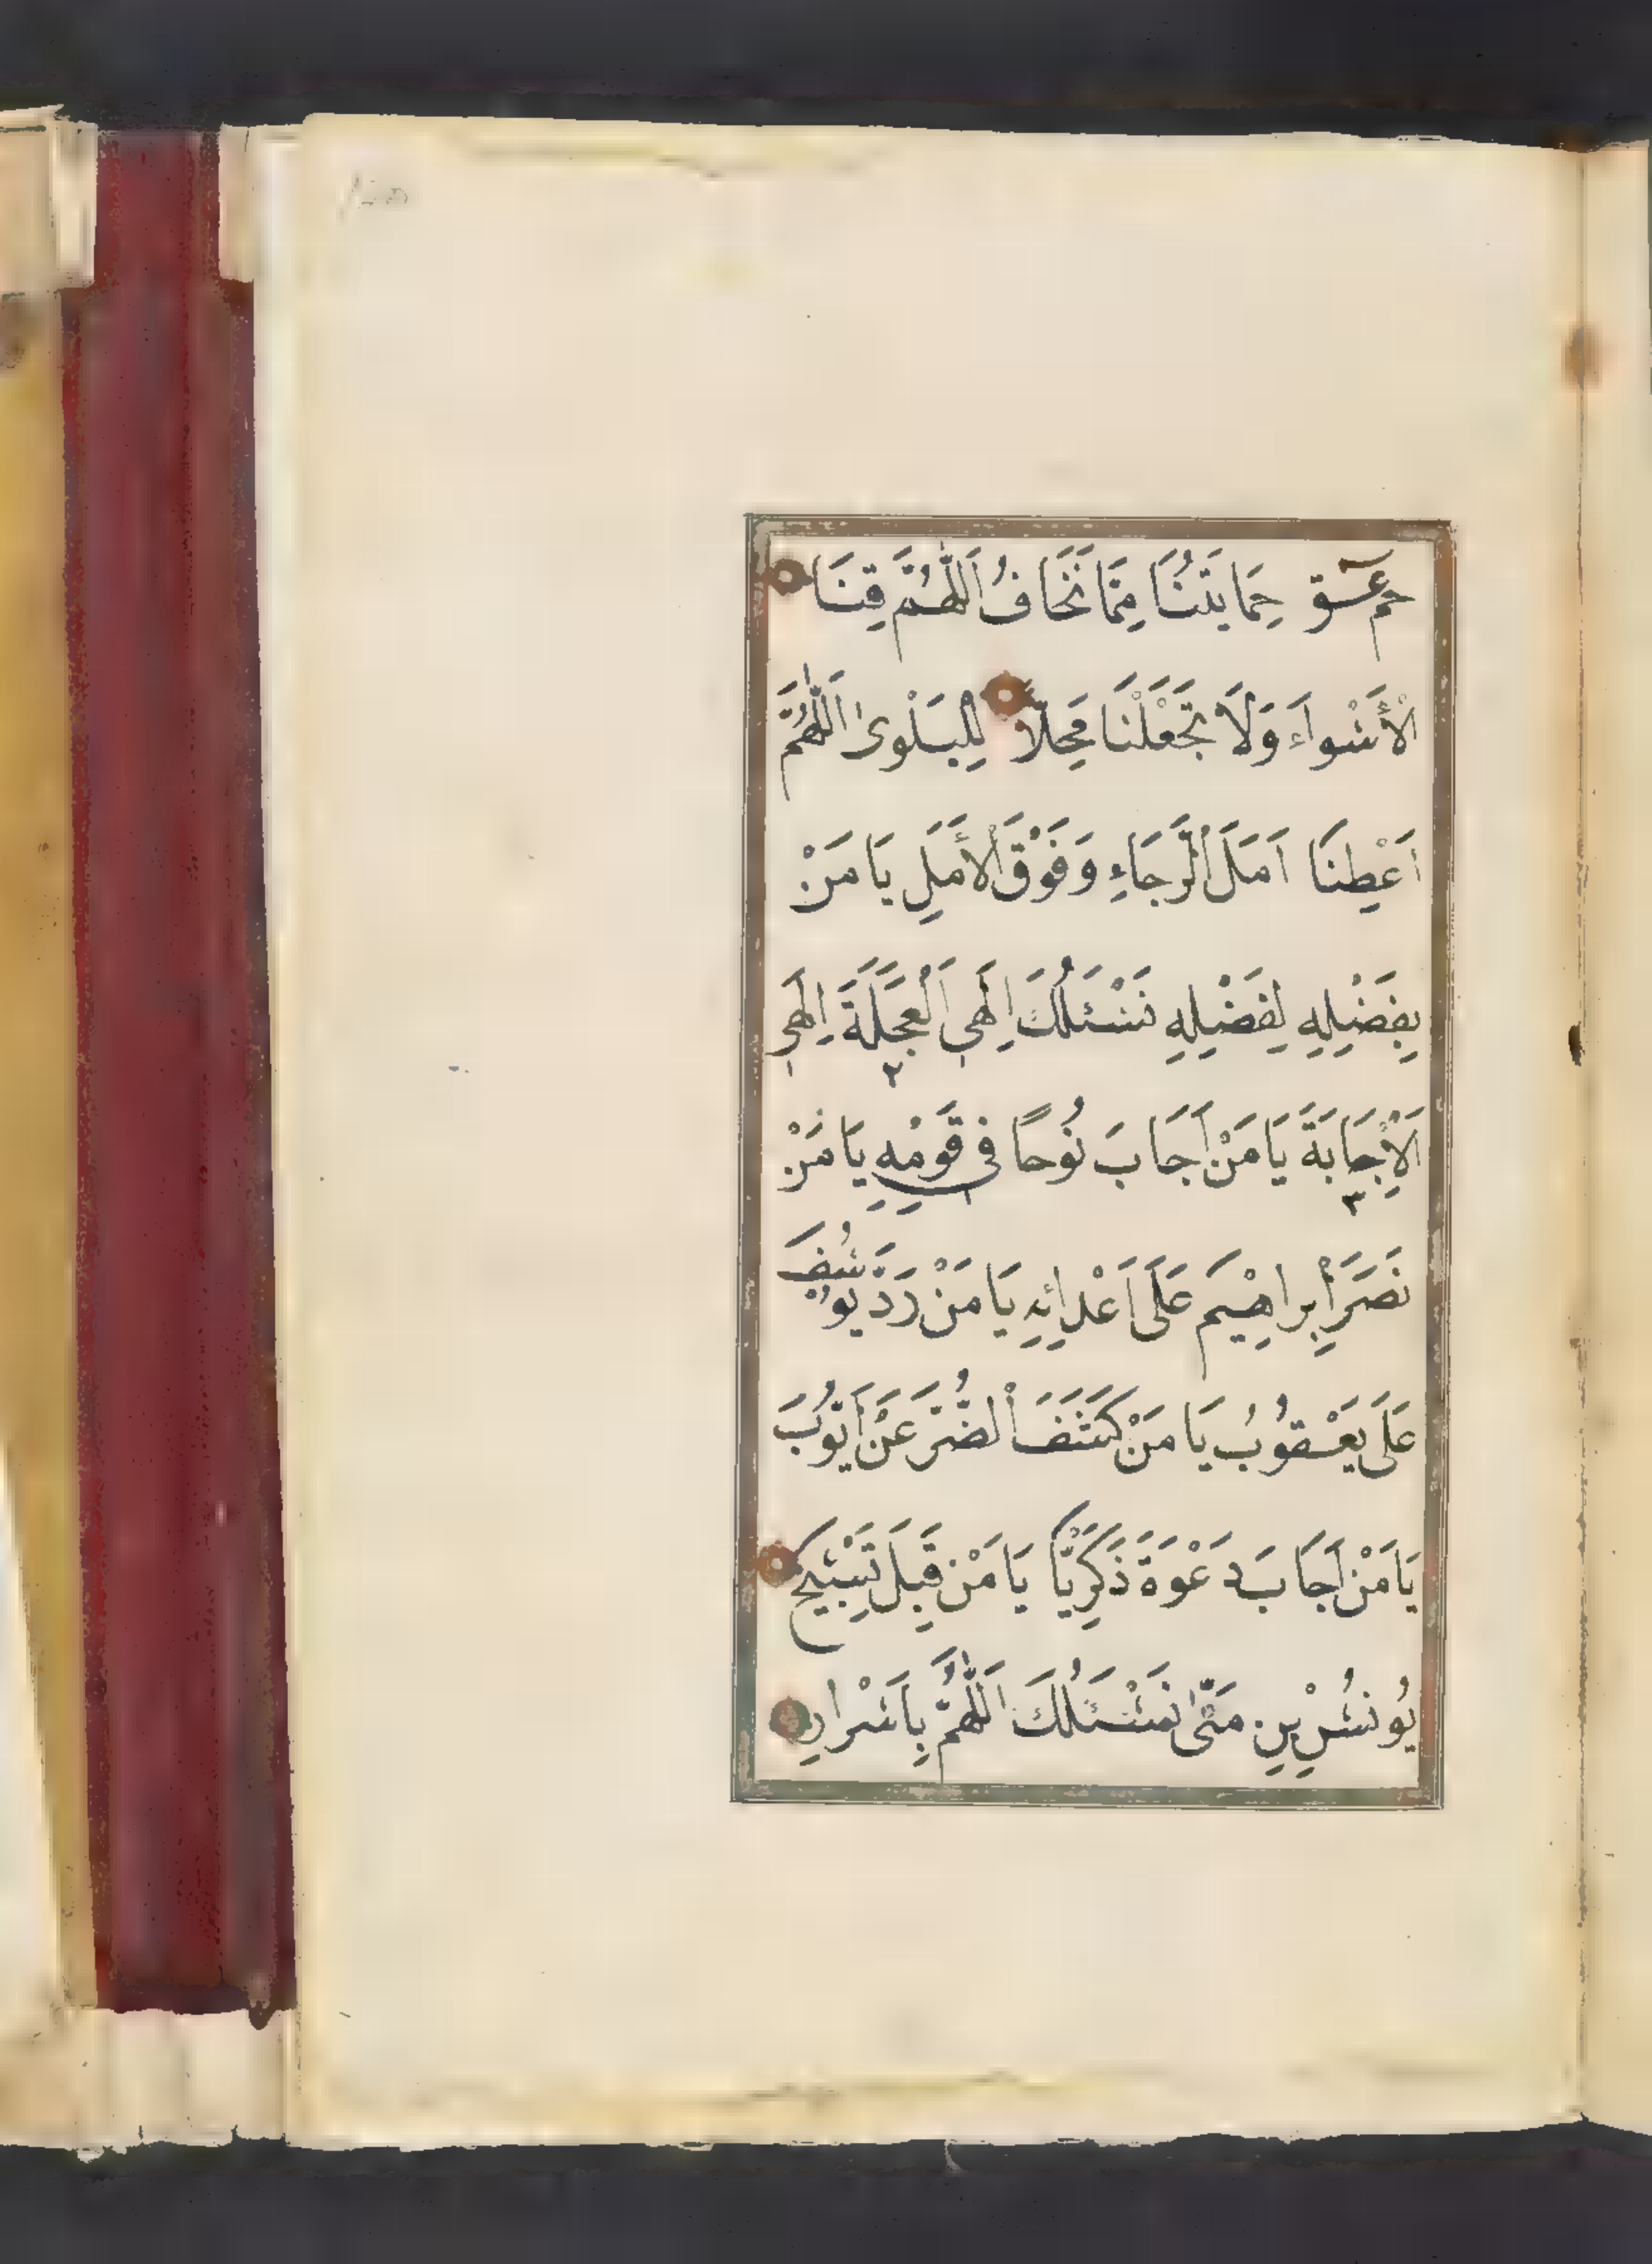 حٰمٓ عٓسٓقٓ حِمَايَتُنَا مِمَّا نَخَافُ اَللّٰهُمَّ قِنَا
الْأَسْوَاءَ وَلَا تَجْعَلْنَا مَحَلًّا لِلْبَلْوٰى اَللّٰهُمَّ
اَعْطِنَا اَمَلَ الرَّجَاءِ وَفَوْقَ الْأَمَلِ يَا مَنْ
بِفَضْلِهِ لِفَضْلِهِ نَسْئَلُكَ اِلٰهِي اَلْعَجَلَةَ ٢ اِلٰهِي
اَلْاِجَابَةَ ٣ يَا مَنْ اَجَابَ نُوحًا فِي قَوْمِهِ يَا مَنْ
نَصَرَ اِبْرَاهِيمَ عَلَى اَعْدَائِهِ يَا مَنْ رَدَّ يُوسُفَ
عَلَى يَعْقُوبَ يَا مَنْ كَشَفَ الضُّرَّ عَنْ اَيُّوبَ
يَا مَنْ اَجَابَ دَعْوَةَ ذَكَرِيَّا يَا مَنْ قَبِلَ تَسْبِيحَ
يُونُسَ بْنِ مَتّٰى نَسْئَلُكَ اَللّٰهُمَّ بِاَسْرَارِ